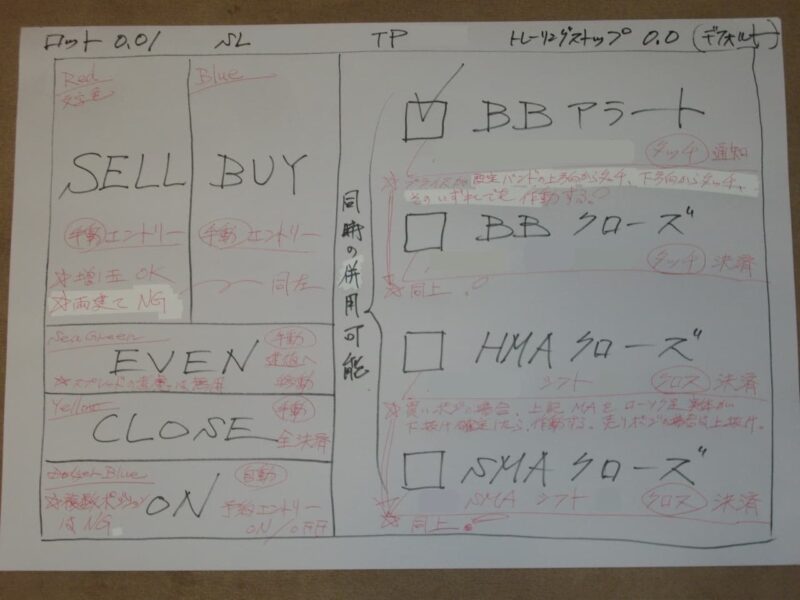 ロット 0.01 SL TP トレーリングストップ 0.0 (デフォルト)
Red
文字色
SELL
手動エントリー
※増玉 OK
※両建て NG
Blue
BUY
手動エントリー
同左
Sea Green
EVEN
手動
建値へ
移動
※スプレッドの考慮は無用
Yellow
CLOSE
手動
全決済
Dodger Blue
ON
自動
※複数ポジション
はNG
予約エントリー
ON/OFF
同時の併用可能
BB アラート
タッチ 通知
※プライスが設定バンドの上方向からタッチ、下方向からタッチ、
そのいずれでも作動する。
BB クローズ
タッチ 決済
※同上。
HMA クローズ
シフト クロス 決済
※買いポジの場合、上記MAをローソク足実体が
下抜け確定したら、作動する。売りポジの場合は上抜け。
SMA クローズ
SMA シフト クロス 決済
※同上。